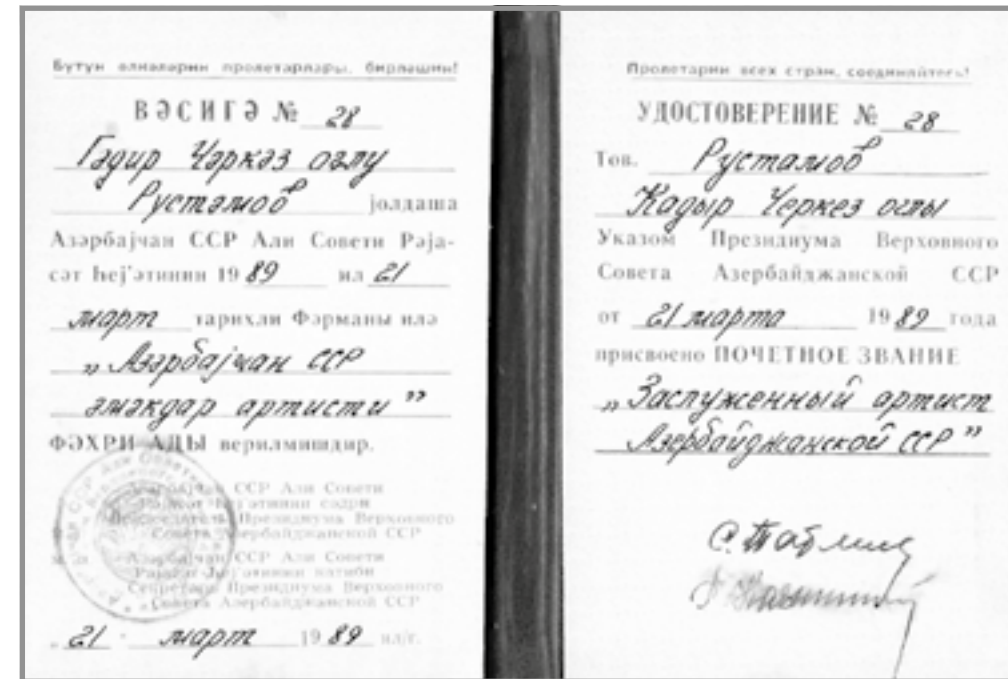 Бүтүн өлкәләрин пролетарлары, бирләшин!
ВӘСИГӘ № 28
Гәдир Чәркәз оғлу
Рустәмов јолдаша
Азәрбајҹан ССР Али Совети Рәја-
сәт Һеј'әтинин 1989 ил 21
март тарихли Фәрманы илә
„Азәрбајҹан ССР
әмәкдар артисти”
ФӘХРИ АДЫ верилмишдир.
Азәрбајҹан ССР Али Совети
Рәјасәт Һеј'әтинин сәдри
Председатель Президиума Верховного
Совета Азербайджанской ССР
Азәрбајҹан ССР Али Совети
Рәјасәт Һеј'әтинин катиби
Секретарь Президиума Верховного
Совета Азербайджанской ССР
„21 март 1989 ил/г.
Пролетарии всех стран, соединяйтесь!
УДОСТОВЕРЕНИЕ № 28
Тов. Рустамов
Кадыр Черкез оглы
Указом Президиума Верховного
Совета Азербайджанской ССР
от 21 марта 1989 года
присвоено ПОЧЕТНОЕ ЗВАНИЕ
„Заслуженный артист
Азербайджанской ССР”